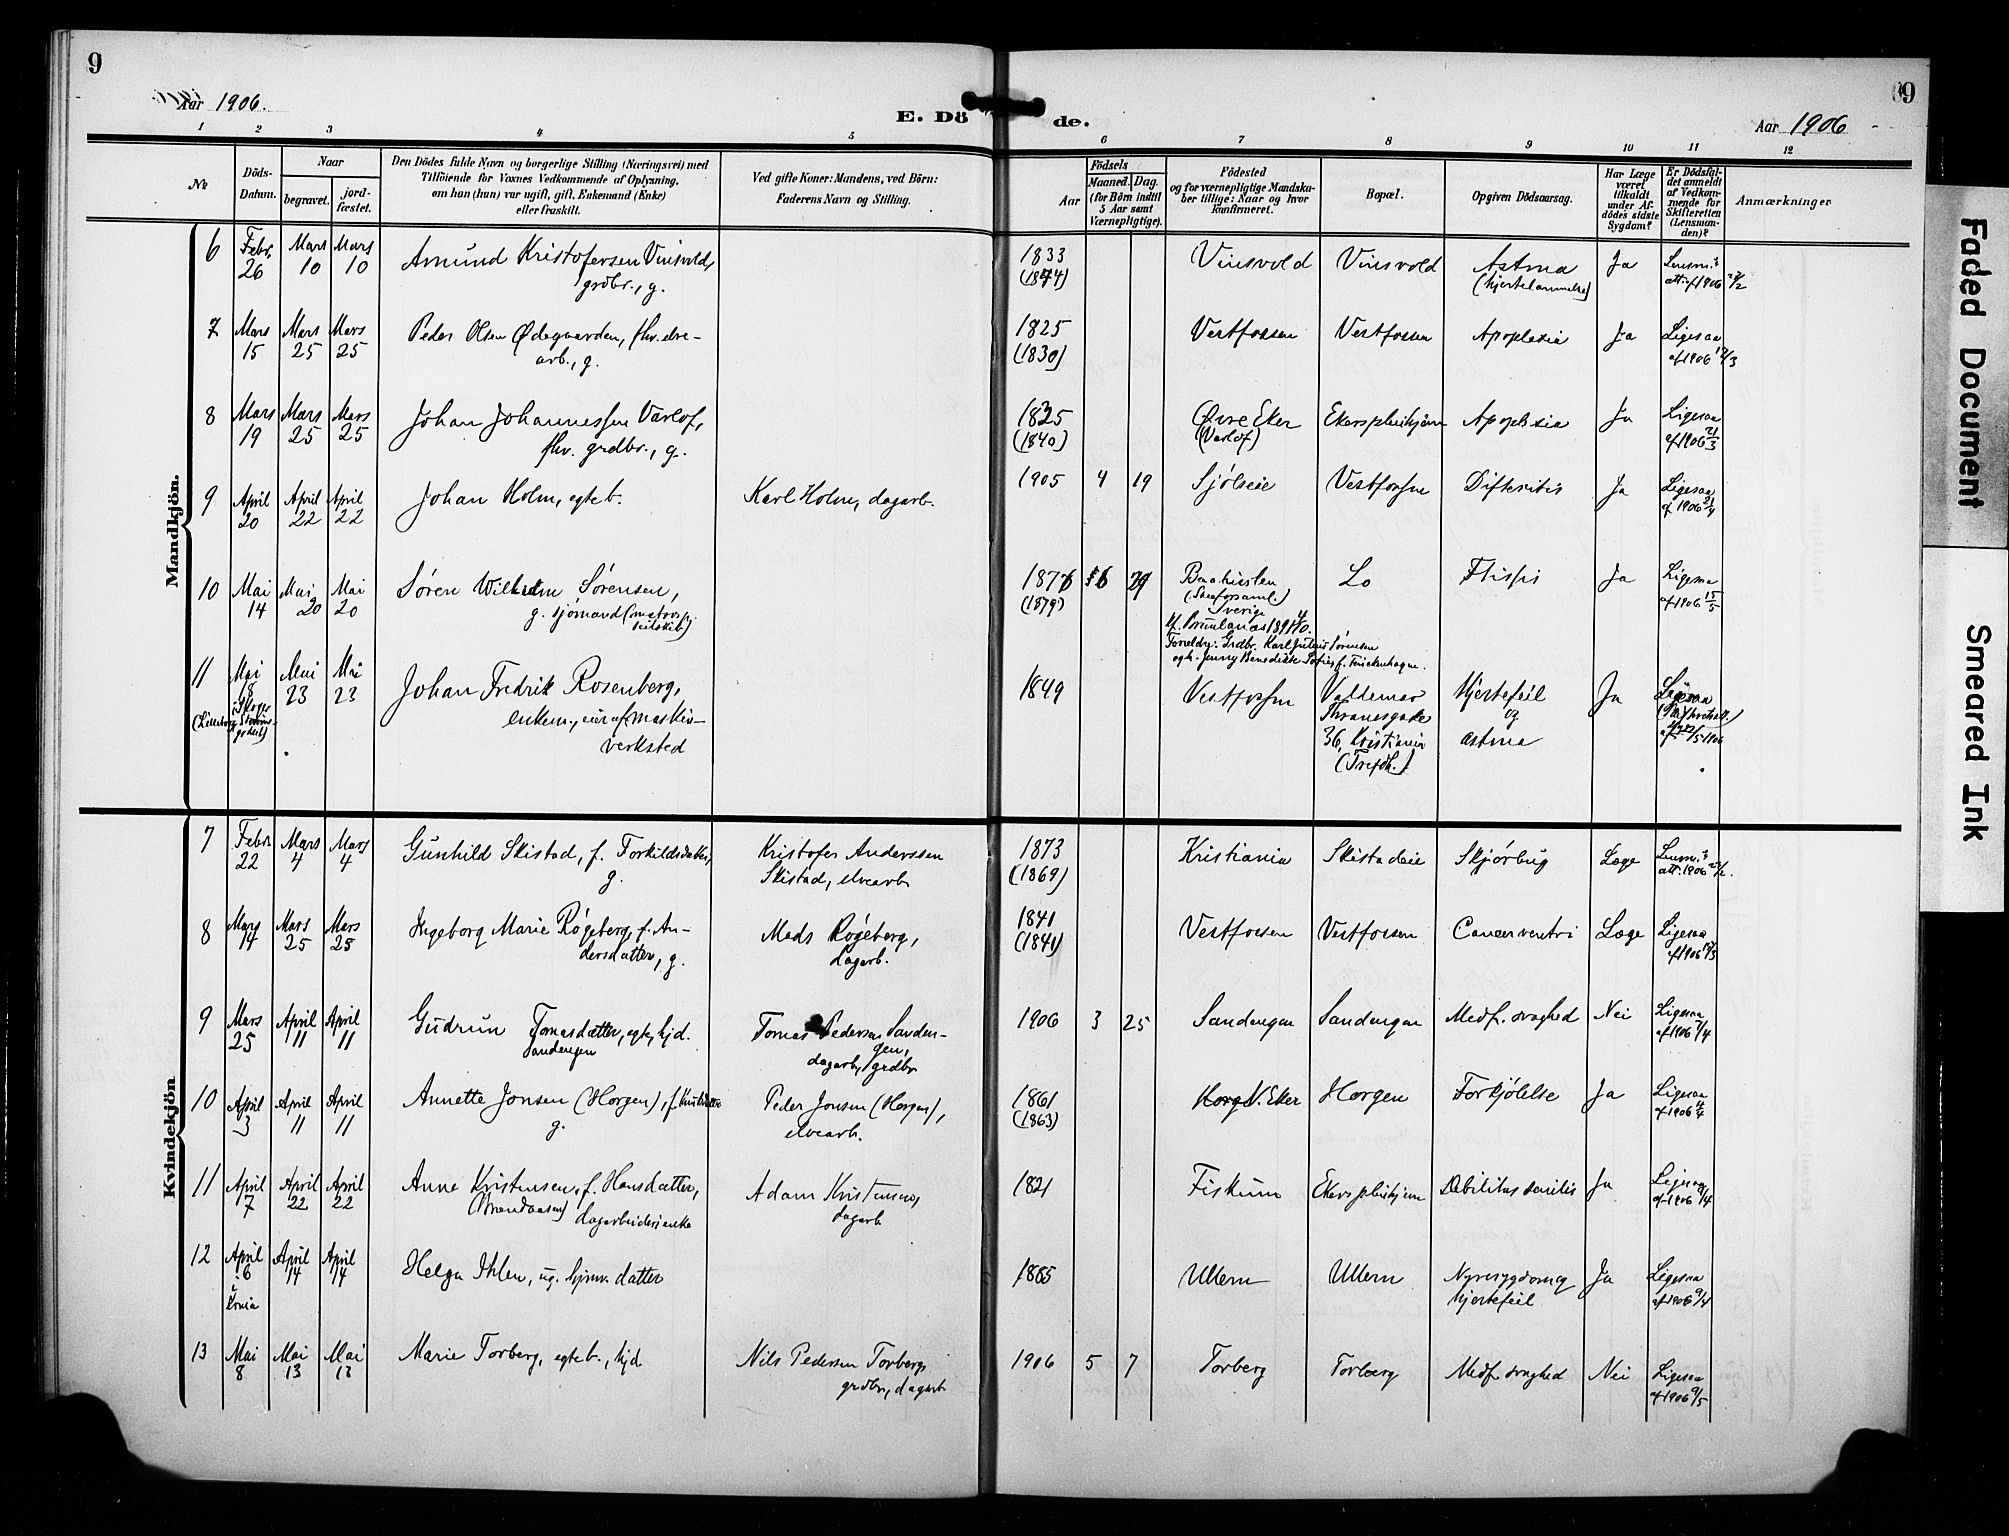 9
Aar 1906.
E. Dö
1 2 3 4 5
№
Döds-
Datum.
Naar
begravet.
jord-
fæstet.
Den Dödes fulde Navn og borgerlige Stilling (Næringsvei) med
Tilföiende for Voxnes Vedkommende af Oplysning,
om han (hun) var ugift, gift, Enkemand (Enke)
eller fraskilt.
Ved gifte Koner: Mandens, ved Börn:
Faderens Navn og Stilling.
Mandkjön.
6 Febr. 26 Mars 10 Mars 10 Amund Kristofersen Vinsvold,
grdbr., g.
7 Mars 15 Mars 25 Mars 25 Peder Olsen Ødegaarden, fhv. elve-
arb., g.
8 Mars 19 Mars 25 Mars 25 Johan Johannessen Varlof,
fhv. grdbr., g.
9 April 20 April 22 April 22 Johan Holm, egteb. Karl Holm, dagarb.
10 Mai 14 Mai 20 Mai 20 Søren Wilhelm Sørensen,
g. sjømand
11 Mai 18 Mai 23 Mai 23 Johan Fredrik Rosenberg,
enkem., eier af maskin-
verksted
Kvindekjön
7 Febr 22 Mars 4 Mars 4 Gunhild Skistad, f. Torkildsdatter, Kristofer Anderssen
g. Skistad, elvearb
8 Mars 14 Mars 25 Mars 25 Ingeborg Marie Røgeberg, f. An- Mads Røgeberg,
dersdatter, g. dagarb.
9 Mars 25 April 11 April 11 Gudrun Tomasdatter, egte, hjd. Tomas Pedersen Sanden-
Sandengen gen,
dagarb, grdbr
10 April 3 April 11 April 11 Annette Jonsen (Horgen), f. Peder Jonsen (Horgen),
g. elvearb.
11 April 7 April 22 April 22 Anne Kristensen, f. Hansdatter, Adam Kristensen,
dagarbeiderenke dagarb
12 April 6 i Kr.nia April 14 April 14 Helga Ihlen, ug. datter
13 Mai 8 Mai 13 Mai 13 Marie Torberg, egteb., hjd. Nils Pedersen Torberg,
grdbr, dagarb
9
de.
Aar 1906
6 7 8 9 10 11 12
Födsels
Aar
Maaned. Dag.
(for Börn indtil
5 Aar samt
Værnepligtige).
Födested
og for værnepligtige Mandska-
ber tillige: Naar og hvor
konfirmeret.
Bopæl.
Opgiven Dödsaarsag.
Har Læge
været
tilkaldt
under Af-
dödes sidste
Sygdom?
Er Dödsfal-
det anmeldt
af Vedkom-
mende for
Skifteretten
(Lensman-
den)?
Anmærkninger
1833 Vinsvold Vinsvold Astma Ja Lensm.s
(1874) (hjertelammelse) att. af 1906 27/2
1825 Vestfossen Vestfossen Apoplexia Ja Ligesaa
(1830) af 1906 17/3
1825 Øvre Eker Ekerspleiehjem Apoplexia Ja Ligesaa
(1840) (Varlof) af 1906 21/3
1905 4 19 Sjølseie Vestfossen Difteritis Ja Ligesaa
af 1906 21/4
1876 6 29 Lo Ftisis Ja Ligesaa
(1879) Sverige af 1906 15/5
Forældre: Grdbr. Karl Julius Sørensen
1849 Vestfossen Valdemar Hjertefeil Ja Ligesaa
Thranesgade og
36, Kristiania astma
1873 Kristiania Skistadeie Skjørbug Læge Lensm.s
(1869) att. 1906
1841 Vestfossen Vestfossen Cancer ventri Læge Ligesaa
(1841) af 1906 17/3
1906 3 25 Sandengen Sandengen Medf. svaghed Nei Ligesaa
af 1906 7/4
1861 N. Eker Horgen Forkjølelse Ja Ligesaa
(1863) af 1906 4/4
1821 Fiskum Ekerspleiehjem Debilitas senilis Ja Ligesaa
af 1906 9/4
1885 Ullern Ullern Nyresygdom og Ja Ligesaa
hjertefeil af 1906 9/4
1906 5 7 Torberg Torberg Medf. svaghed Nei Ligesaa
af 1906 9/5
Faded Document
Smeared Ink